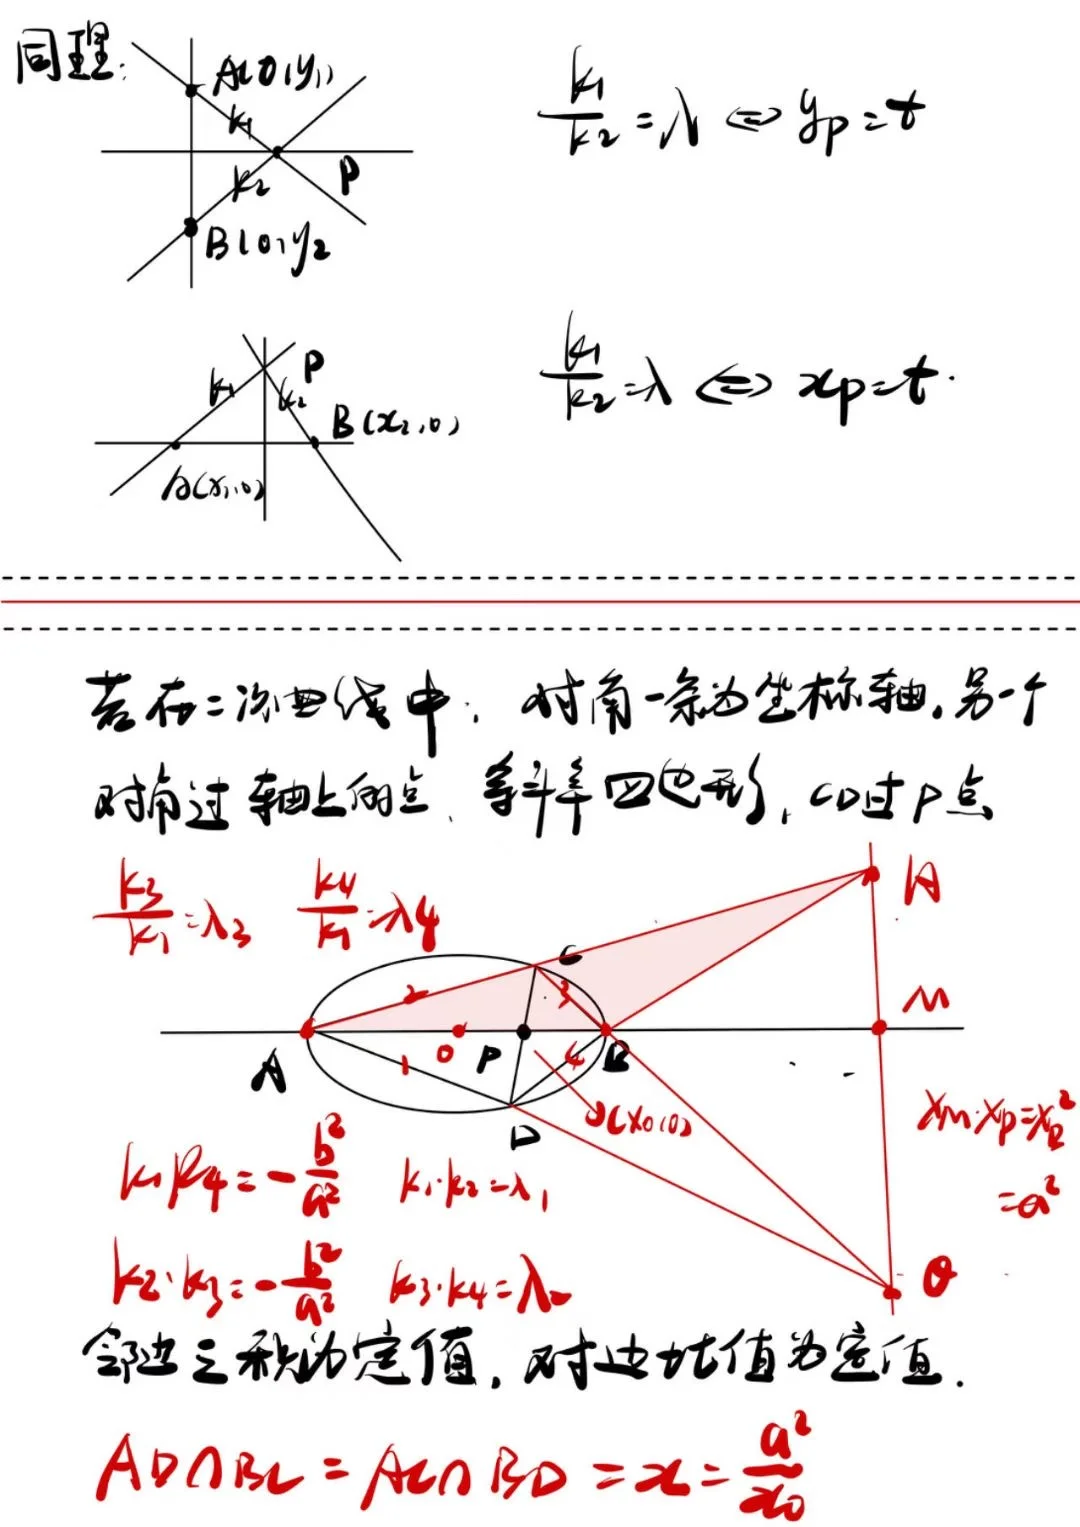 同理:
A(0,y₁)
k₁
k₂
P
B(0,y₂
k₁/k₂=λ⇔yp=t
P
k₁
k₂
B(x₂,0)
A(x₁,0)
k₁/k₂=λ⇔xp=t.
若在二次曲线中,对角一条为坐标轴,另一个
对角过轴上的点、等斜率四边形,CD过P点
k₃/k₁=λ₃ k₄/k₁=λ₄
A
C
M
2
3
A
O
P
B
1
4
D
(x₀,0)
xM·xp=x²
=a²
k₁k₄=-b²/a² k₁·k₂=λ₁
k₂·k₃=-b²/a² k₃·k₄=λ₂
Q
邻边之积为定值,对边比值为定值.
AD∩BC=AC∩BD=x=a²/x₀